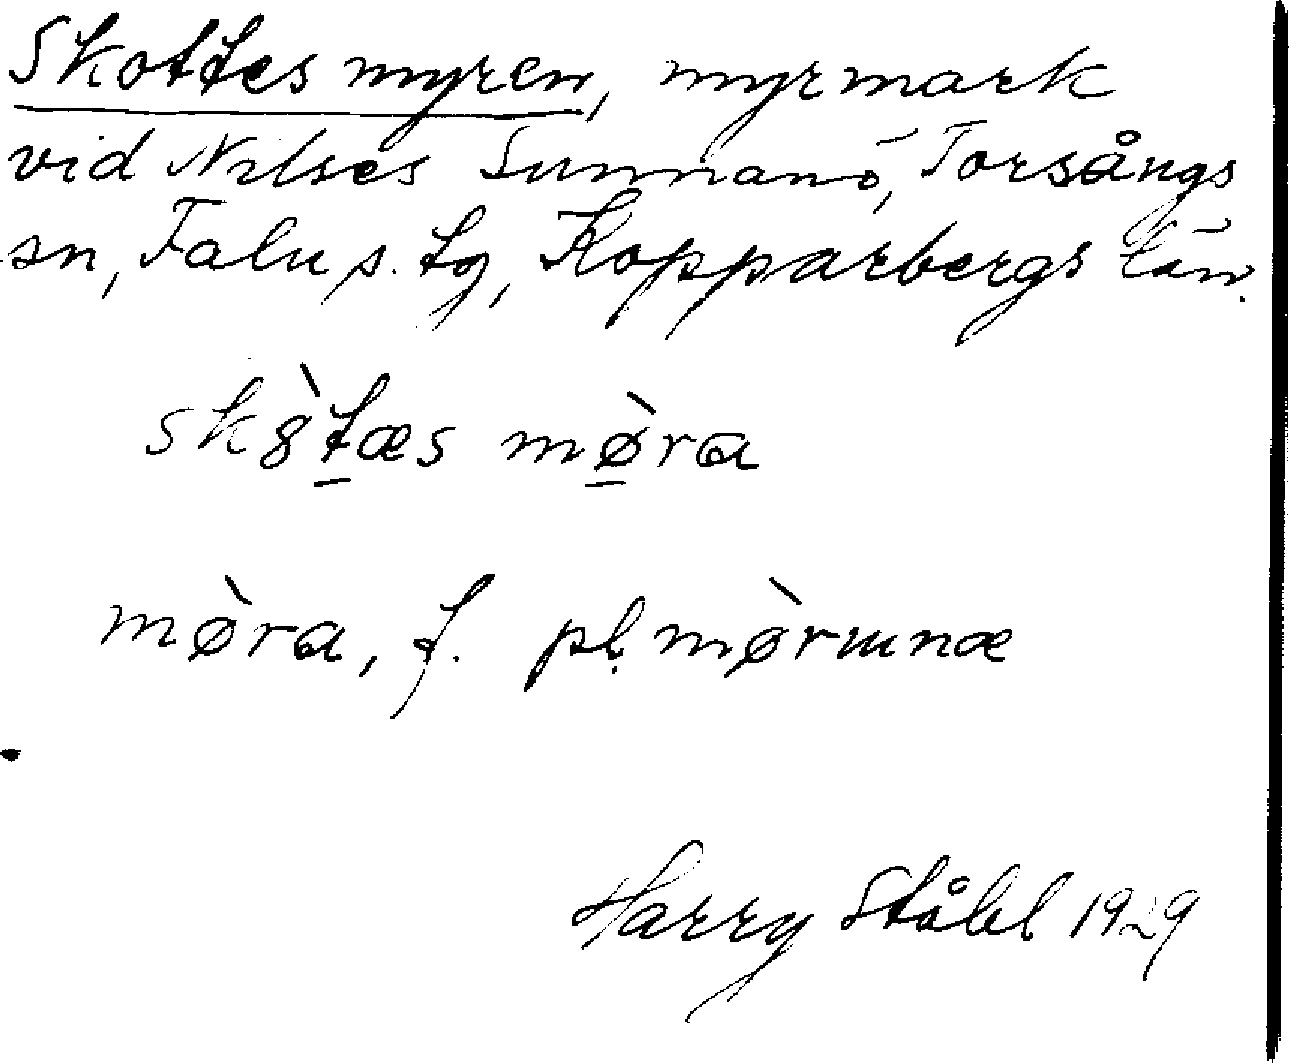 Skottes myren, myrmark
vid Nilses Sunnanö, Torsångs
sn, Falu s. tg, Kopparbergs län.
sk8̀tæs mø̀ra
mø̀ra, f. pl. mø̀rɯnæ
Harry Ståhl 1929